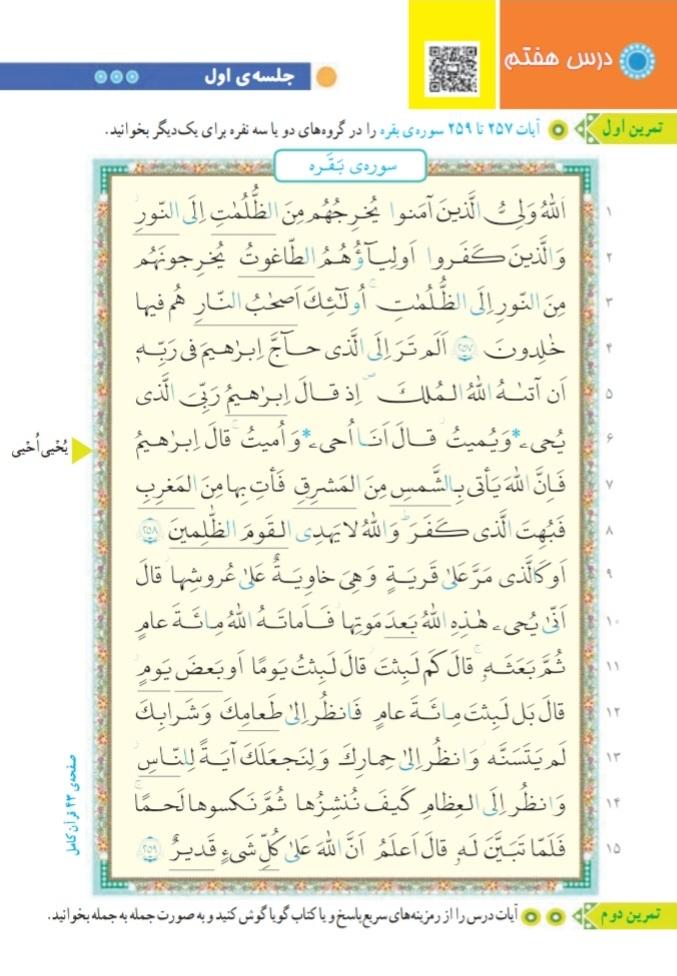 درس هفتم
جلسه‌ی اول
تمرین اول
آیات ۲۵۷ تا ۲۵۹ سوره‌ی بقره را در گروه‌های دو یا سه نفره برای یک‌دیگر بخوانید.
سوره‌ی بَقَره
۱ اَللّٰهُ وَلِیُّ الَّذینَ آمَنوا یُخرِجُهُم مِنَ الظُّلُمٰتِ اِلَی النّورِ
۲ وَ الَّذینَ کَفَروا اَولِیآؤُهُمُ الطّاغوتُ یُخرِجونَهُم
۳ مِنَ النّورِ اِلَی الظُّلُمٰتِ ۚ اُولٰئِكَ اَصحٰبُ النّارِ هُم فیها
۴ خٰلِدونَ ﴿۲۵۷﴾ اَلَم تَرَ اِلَی الَّذی حآجَّ اِبرٰهیمَ فی رَبِّهٖ
۵ اَن آتىٰهُ اللّٰهُ المُلكَ ۘ اِذ قالَ اِبرٰهیمُ رَبِّیَ الَّذی
۶ یُحیٖ* وَ یُمیتُ ۙ قالَ اَنَا اُحیٖ* وَ اُمیتُ ۖ قالَ اِبرٰهیمُ
یُحْیی اُحْیی
۷ فَاِنَّ اللّٰهَ یَأتی بِالشَّمسِ مِنَ المَشرِقِ فَأتِ بِها مِنَ المَغرِبِ
۸ فَبُهِتَ الَّذی کَفَرَ ۗ وَ اللّٰهُ لا یَهدِی القَومَ الظّٰلِمینَ ﴿۲۵۸﴾
۹ اَو کَالَّذی مَرَّ عَلیٰ قَریَةٍ وَ هِیَ خاوِیَةٌ عَلیٰ عُروشِها قالَ
۱۰ اَنّیٰ یُحیٖ هٰذِهِ اللّٰهُ بَعدَ مَوتِها ۖ فَاَماتَهُ اللّٰهُ مِائَةَ عامٍ
۱۱ ثُمَّ بَعَثَهٗ ۖ قالَ کَم لَبِثتَ ۖ قالَ لَبِثتُ یَومًا اَو بَعضَ یَومٍ
۱۲ قالَ بَل لَبِثتَ مِائَةَ عامٍ فَانظُر اِلیٰ طَعامِكَ وَ شَرابِكَ
۱۳ لَم یَتَسَنَّه ۖ وَ انظُر اِلیٰ حِمارِكَ وَ لِنَجعَلَكَ آیَةً لِلنّاسِ
۱۴ وَ انظُر اِلَی العِظامِ کَیفَ نُنشِزُها ثُمَّ نَکسوها لَحمًا
۱۵ فَلَمّا تَبَیَّنَ لَهٗ قالَ اَعلَمُ اَنَّ اللّٰهَ عَلیٰ کُلِّ شَیءٍ قَدیرٌ ﴿۲۵۹﴾
صفحه‌ی ۴۳ قرآن کامل
تمرین دوم
آیات درس را از رمزینه‌های سریع پاسخ و یا کتاب گویا گوش کنید و به صورت جمله به جمله بخوانید.